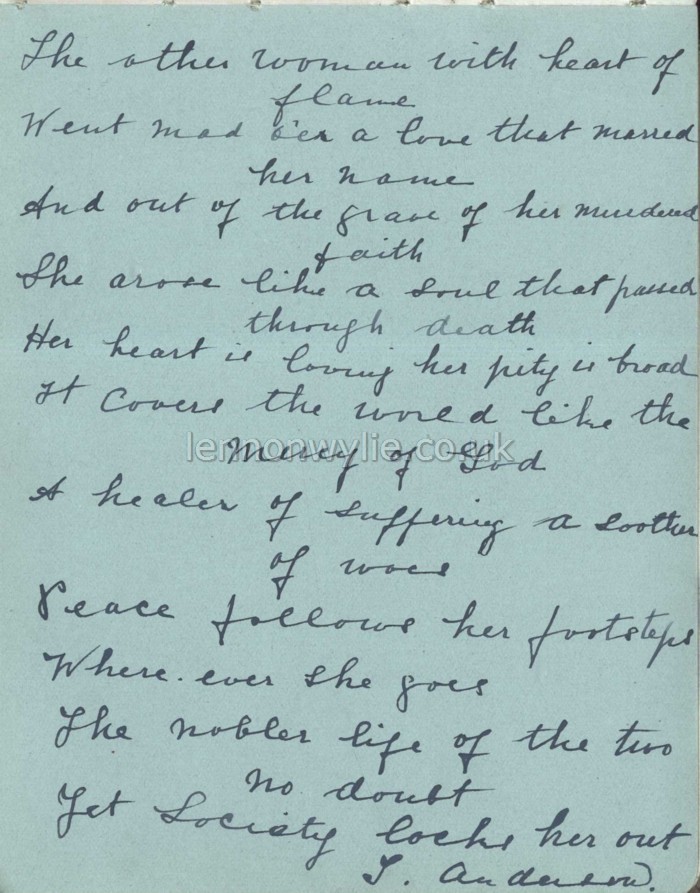 The other woman with heart of
flame
Went mad o'er a love that marred
her name
And out of the grave of her murdered
faith
She arose like a soul that passed
through death
Her heart is loving her pity is broad
It covers the world like the
Mercy of God
A healer of suffering a soother
of woes
Peace follows her footsteps
Where-ever she goes
The nobler life of the two
no doubt
Yet Society locks her out
T. Anderson.
lennonwylie.co.uk